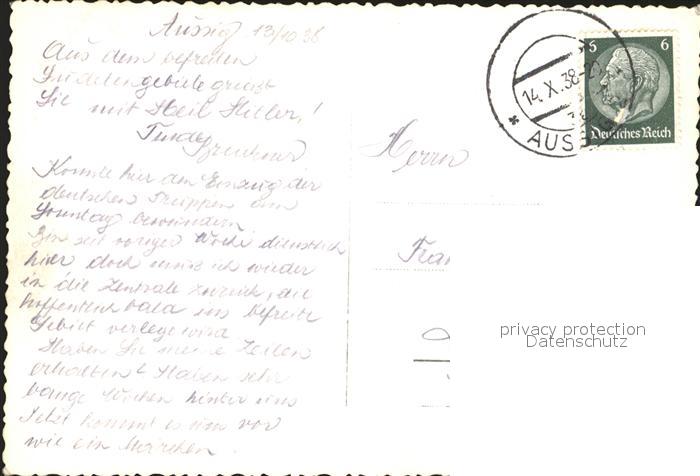 Aussig 13/10 38
Aus dem befreiten
Sudetengebiete grüsst
Sie mit Heil Hitler!
Konnte hier den Einzug der
deutschen Truppen am
Sonntag bewundern.
Bin seit voriger Woche dienstlich
hier doch muss ich wieder
in die Zentrale zurück, die
hoffentlich bald ins befreite
Gebiet verlegt wird
Haben Sie meine Zeilen
erhalten? Haben sehr
bange Wochen hinter uns
Jetzt kommt es uns vor
wie ein Märchen.
Herrn
Fran
14.X.38-2
* AUS
5 6
Deutsches Reich
privacy protection
Datenschutz